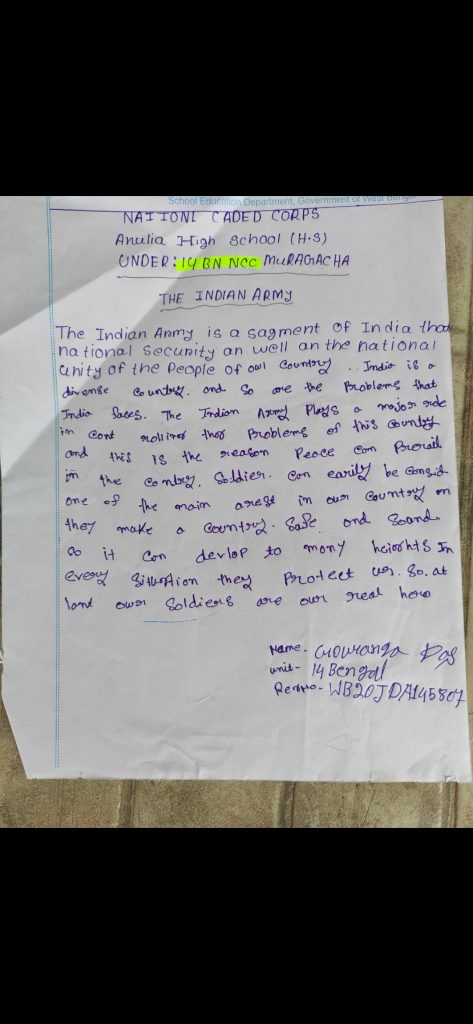 School Education Department, Government of West Bengal
NATIONL CADED CORPS
Anulia High School (H.S)
UNDER: 14 BN NCC MURAGACHA
THE INDIAN ARMY
The Indian Anmy is a sagment of India that
national security an well an the national
unity of the People of owl Country. India is a
divense Country. and so are the Problems that
India faces. The Indian Army Plays a major role
in cont rolling thos Problems of this Country
and this is the reason Peace can Prevail
in the contry. Soldier. can earily be consid
one of the main arest in our country on
they make a country. Safe and Sound
so it can devlop to many heights In
every Situation they Protect us. So. at
lant owr Soldiers are our real hero
Name - Gowranga Das
unit - 14 Bengal
WB20JDA145807